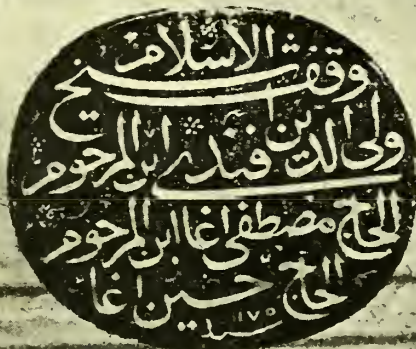 وقف شيخ الاسلام
ولى الدين افندى ابن المرحوم
الحاج مصطفى اغا ابن المرحوم
الحاج حسين اغا
سنه ١٧٥